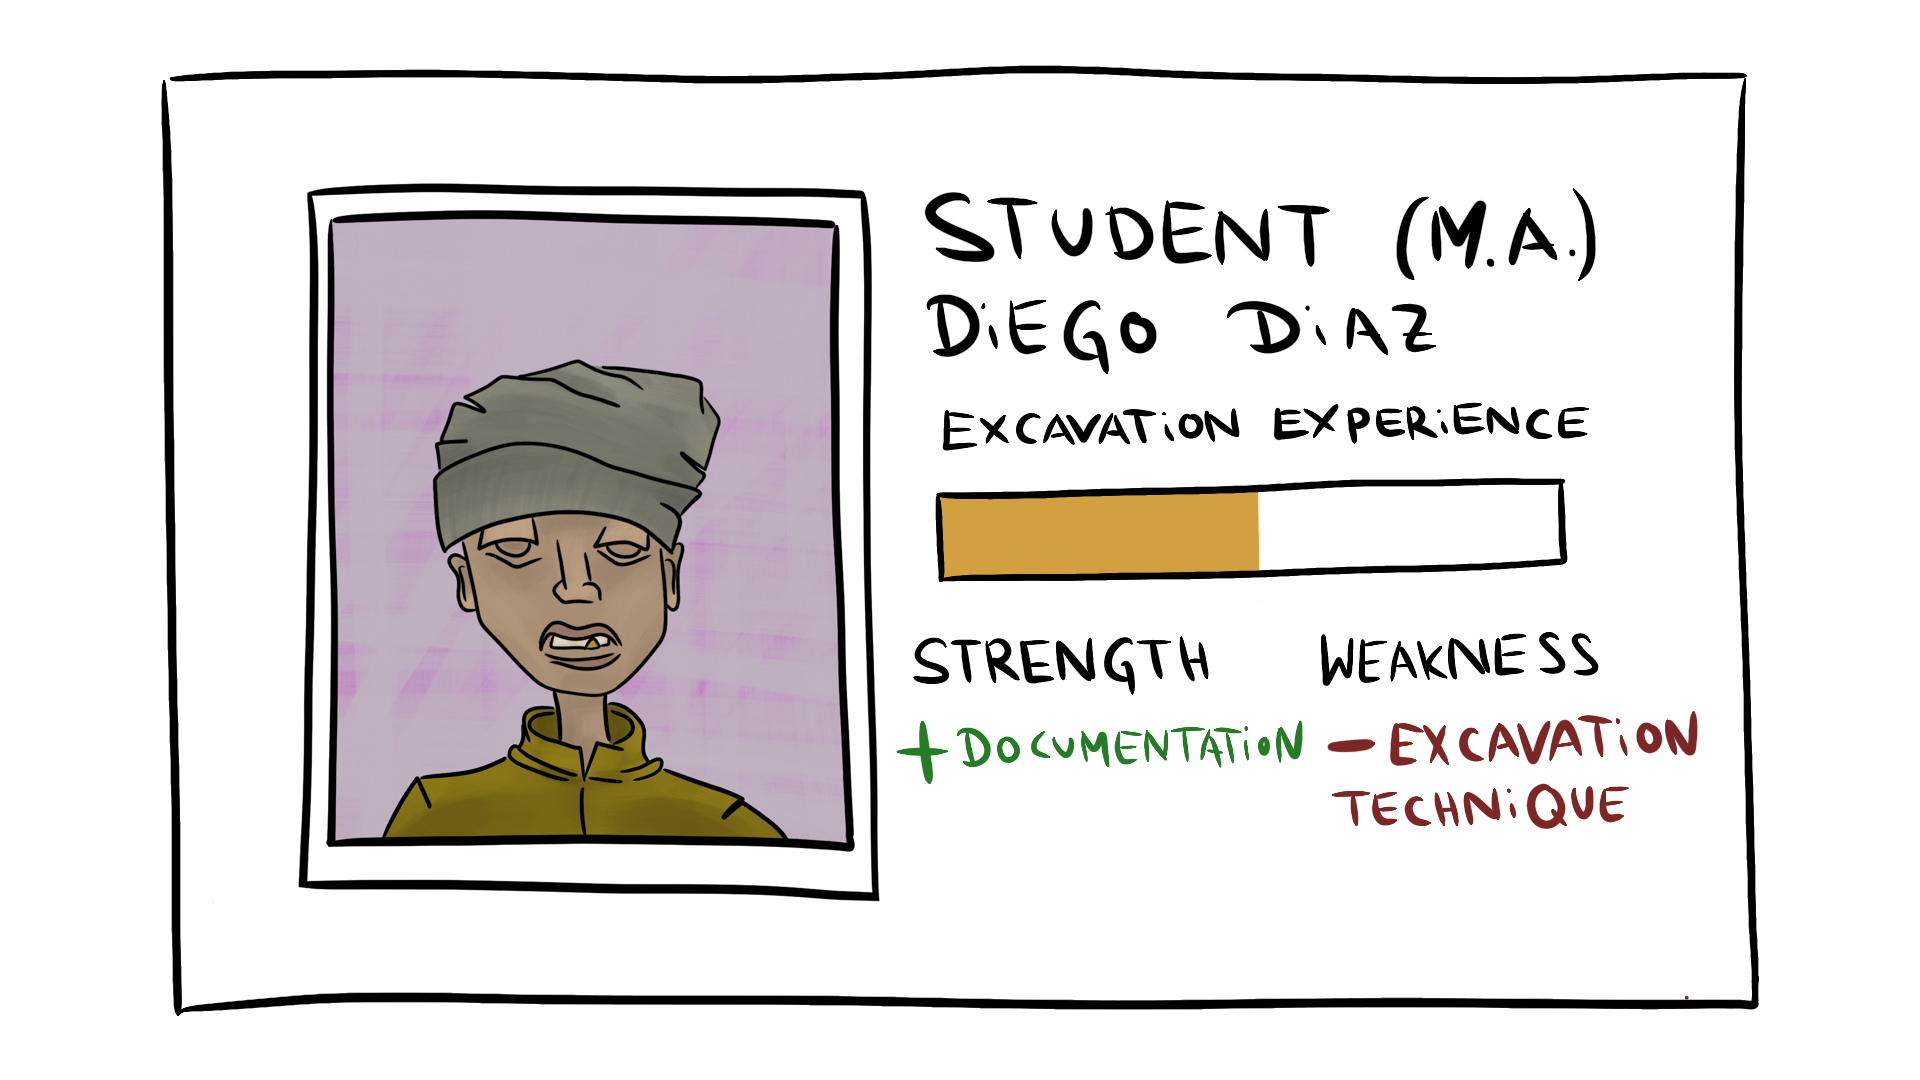 STUDENT (M.A.)
DiEGO DiAZ
EXCAVATiON EXPERiENCE
STRENGTH WEAKNESS
+ DOCUMENTATiON - EXCAVATiON
TECHNiQUE